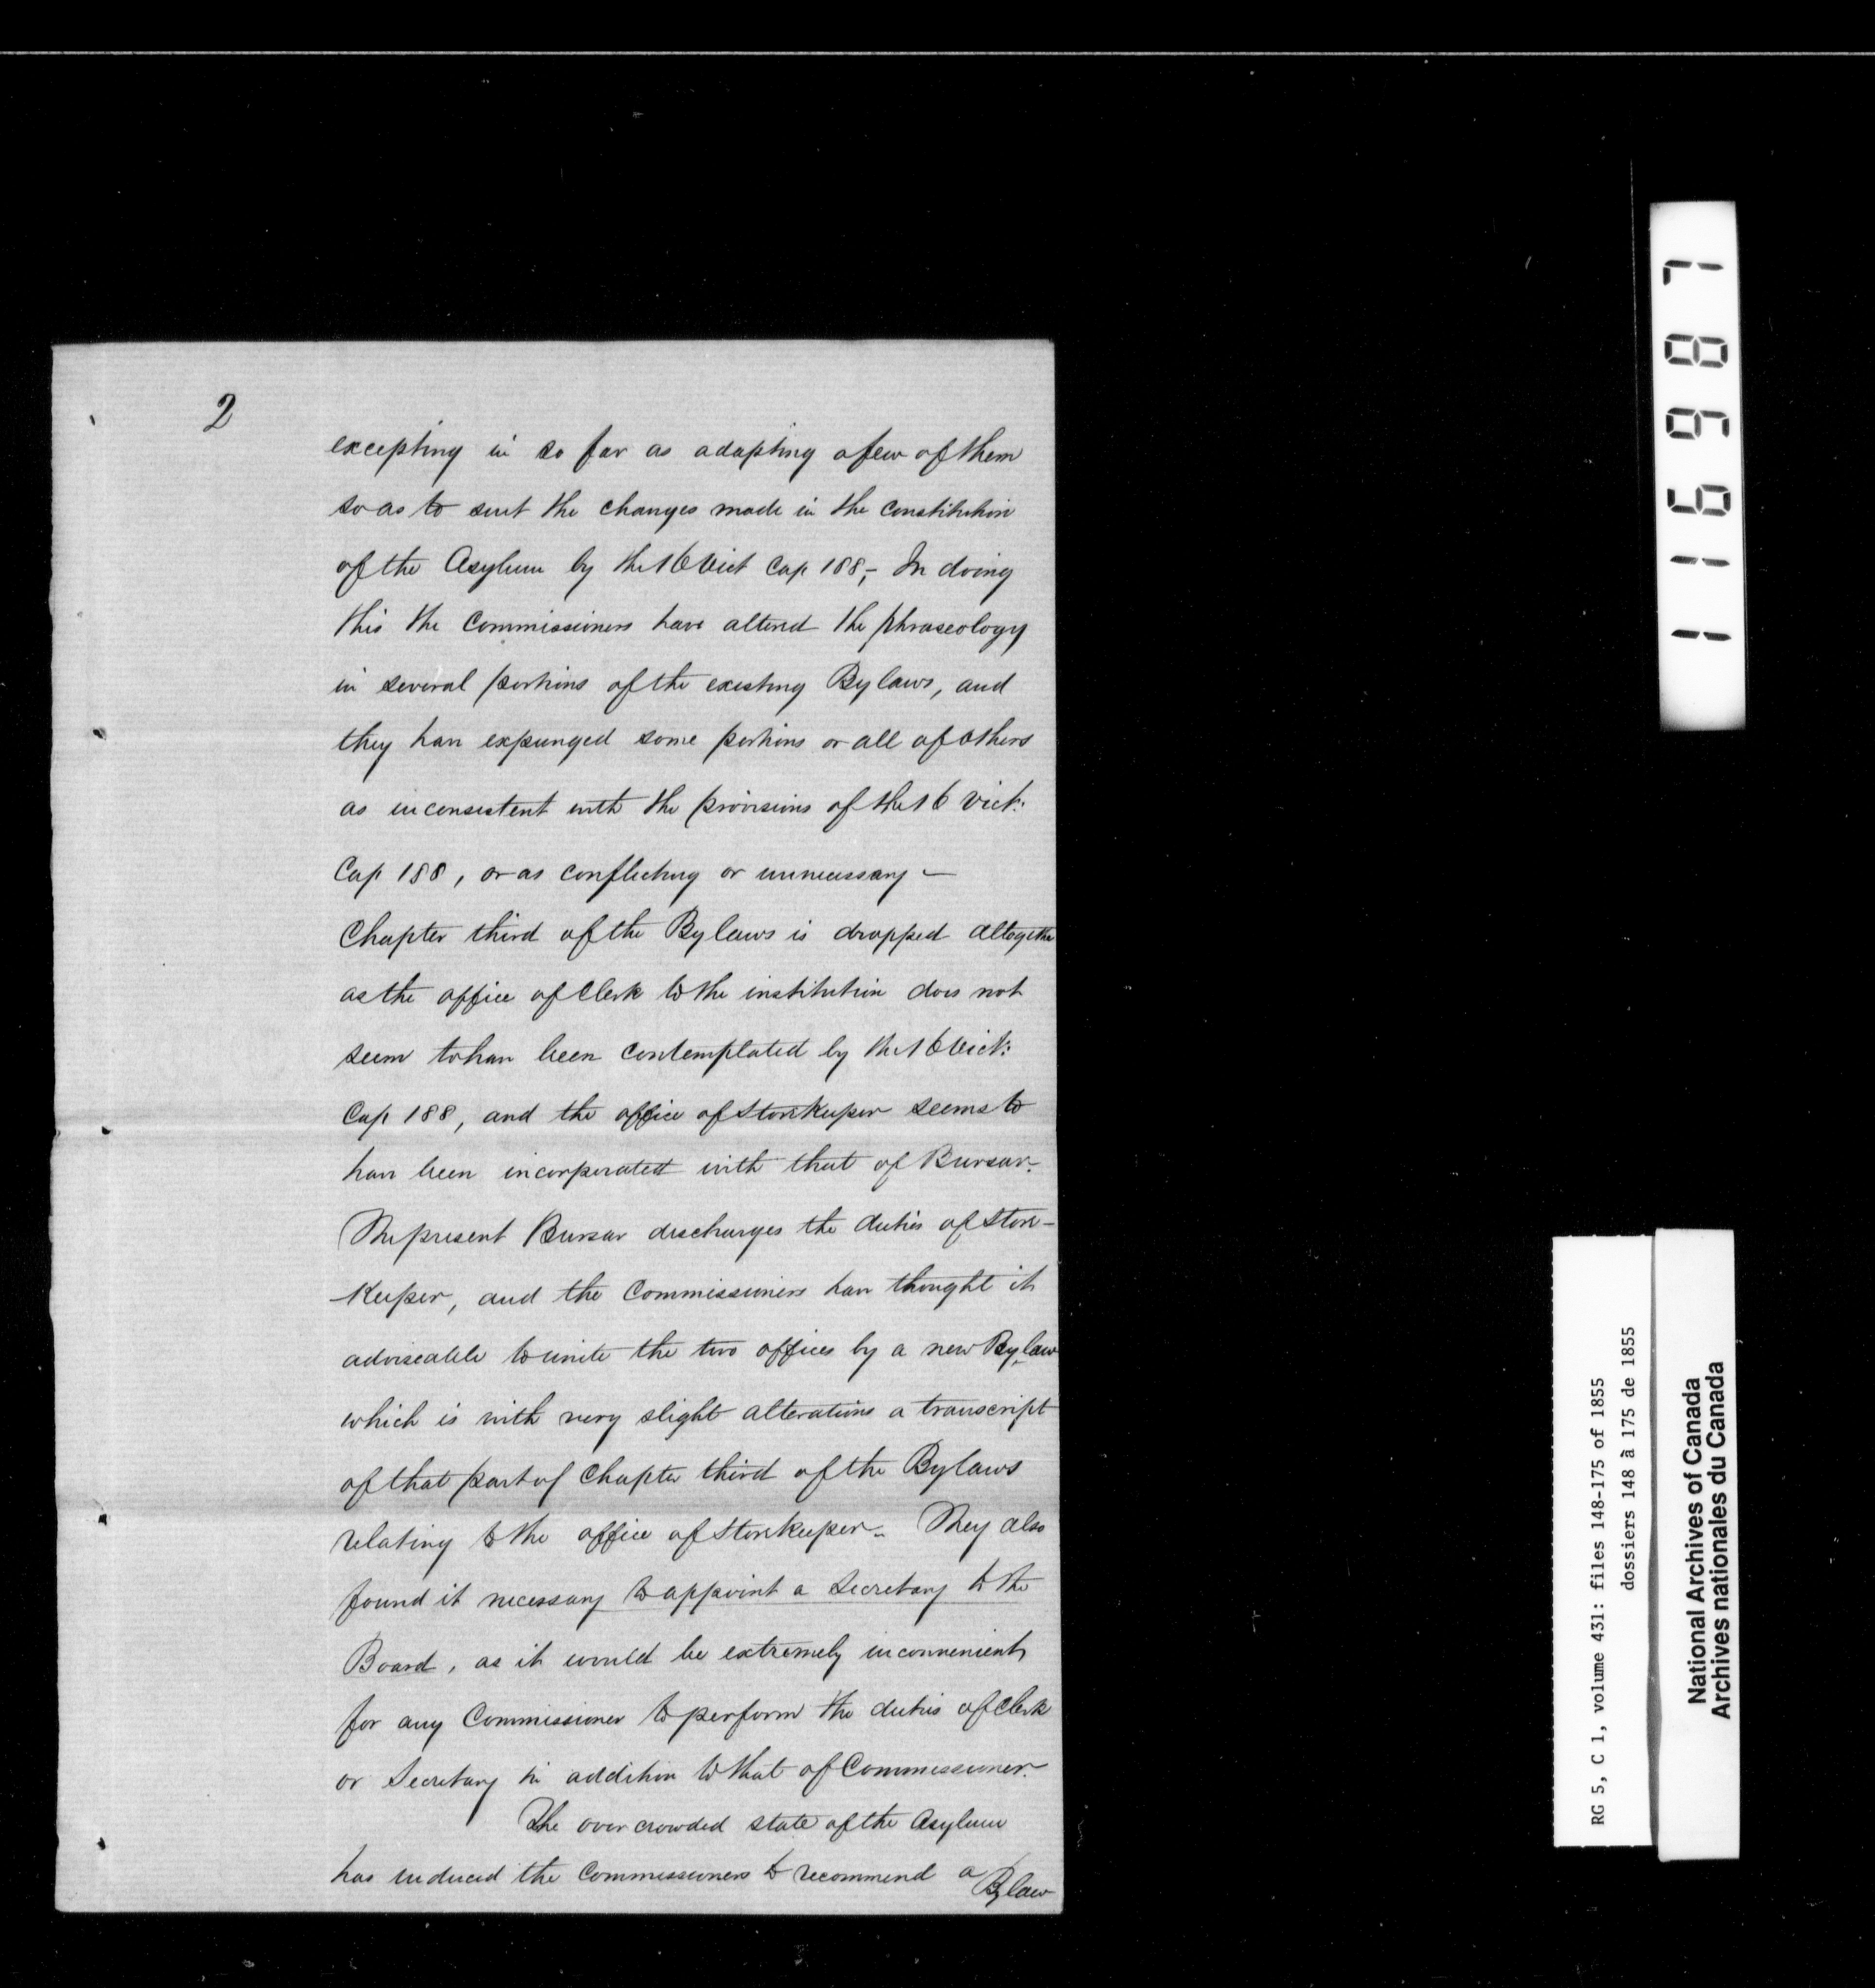 2
excepting in so far as adapting a few of them
so as to suit the changes made in the constitution
of the Asylum by the 16 Vict Cap 188,- In doing
this the Commissioners have altered the phraseology
in several portions of the existing Bylaws, and
they have expunged some portions or all of others
as inconsistent with the provisions of the 16 Vict:
Cap 188, or as conflicting or unnecessary —
Chapter third of the Bylaws is dropped altogether
as the office of Clerk to the institution does not
seem to have been contemplated by the 16 Vict:
Cap 188, and the office of Storekeeper seems to
have been incorporated with that of Bursar.-
The present Bursar discharges the duties of Store-
-Keeper, and the Commissioners have thought it
adviseable to unite the two offices by a new Bylaw
which is with very slight alterations a transcript
of that part of Chapter third of the Bylaws
relating to the office of Storekeeper. They also
found it necessary to appoint a Secretary to the
Board, as it would be extremely inconvenient
for any Commissioner to perform the duties of Clerk
or Secretary in addition to that of Commissioner.
The over crowded state of the Asylum
has induced the Commissioners to recommend a
Bylaw
116987
RG 5, C 1, volume 431: files 148-175 of 1855
dossiers 148 à 175 de 1855
National Archives of Canada
Archives nationales du Canada